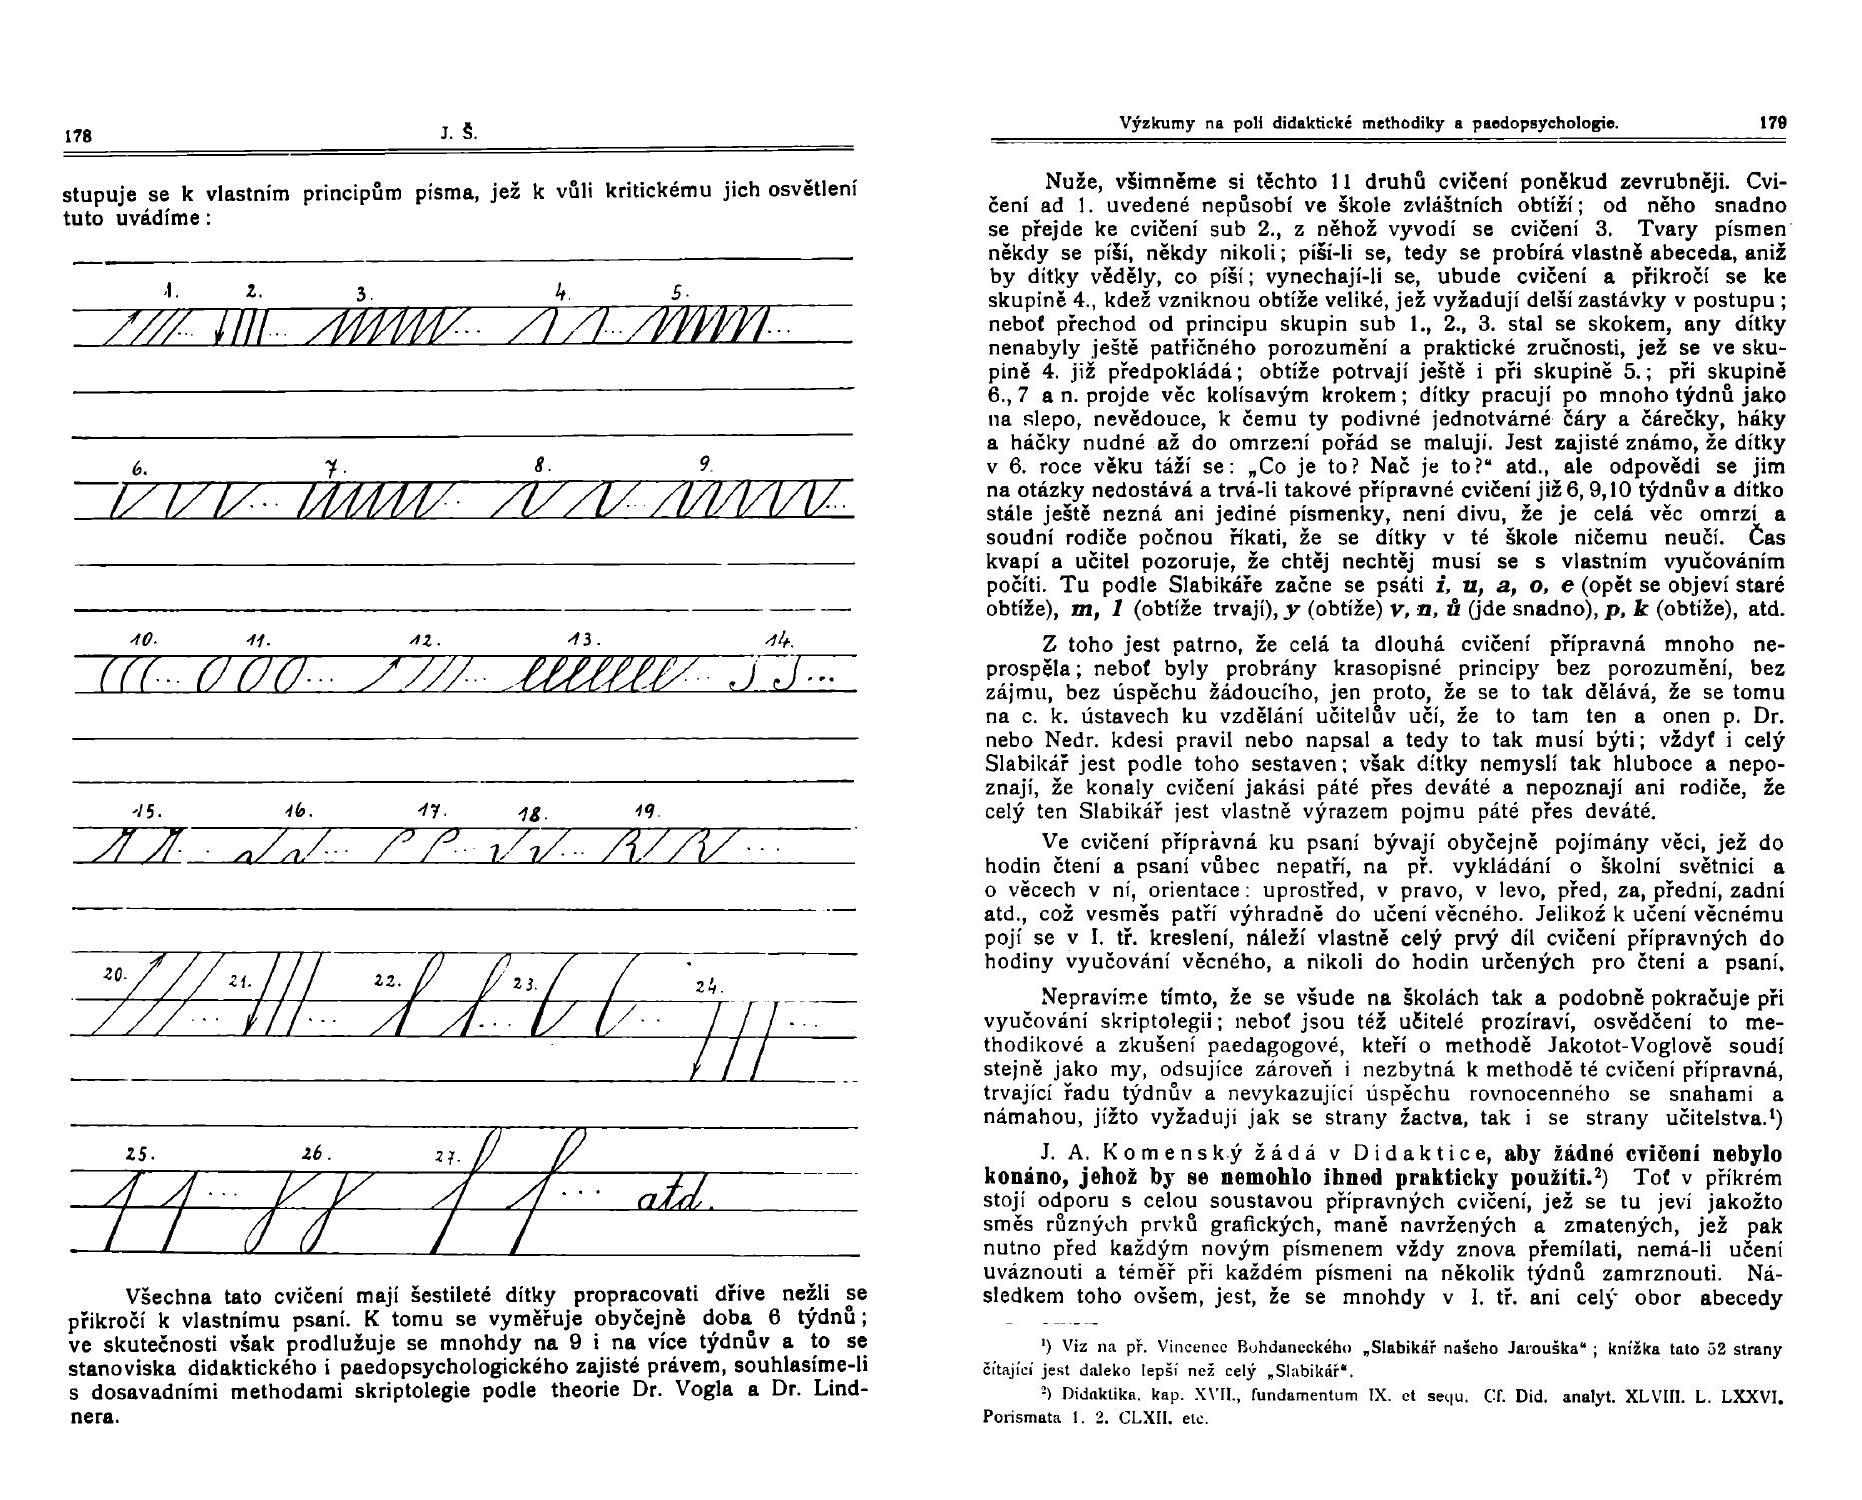 178
J. Š.
stupuje se k vlastním principům písma, jež k vůli kritickému jich osvětlení
tuto uvádíme :
1. 2. 3. 4. 5.
6. 7. 8. 9.
10. 11. 12. 13. 14.
15. 16. 17. 18. 19.
20. 21. 22. 23. 24.
25. 26. 27.
atd.
Všechna tato cvičení mají šestileté dítky propracovati dříve nežli se
přikročí k vlastnímu psaní. K tomu se vyměřuje obyčejně doba 6 týdnů ;
ve skutečnosti však prodlužuje se mnohdy na 9 i na více týdnův a to se
stanoviska didaktického i paedopsychologického zajisté právem, souhlasíme-li
s dosavadními methodami skriptologie podle theorie Dr. Vogla a Dr. Lind-
nera.
Výzkumy na poli didaktické methodiky a paedopsychologie.
179
Nuže, všimněme si těchto 11 druhů cvičení poněkud zevrubněji. Cvi-
čení ad 1. uvedené nepůsobí ve škole zvláštních obtíží ; od něho snadno
se přejde ke cvičení sub 2., z něhož vyvodí se cvičení 3. Tvary písmen
někdy se píší, někdy nikoli ; píší-li se, tedy se probírá vlastně abeceda, aniž
by dítky věděly, co píší ; vynechají-li se, ubude cvičení a přikročí se ke
skupině 4., kdež vzniknou obtíže veliké, jež vyžadují delší zastávky v postupu ;
neboť přechod od principu skupin sub 1., 2., 3. stal se skokem, any dítky
nenabyly ještě patřičného porozumění a praktické zručnosti, jež se ve sku-
pině 4. již předpokládá ; obtíže potrvají ještě i při skupině 5. ; při skupině
6., 7 a n. projde věc kolísavým krokem ; dítky pracují po mnoho týdnů jako
na slepo, nevědouce, k čemu ty podivné jednotvárné čáry a čárečky, háky
a háčky nudné až do omrzení pořád se malují. Jest zajisté známo, že dítky
v 6. roce věku táží se : „Co je to? Nač je to?“ atd., ale odpovědi se jim
na otázky nedostává a trvá-li takové přípravné cvičení již 6, 9, 10 týdnův a dítko
stále ještě nezná ani jediné písmenky, není divu, že je celá věc omrzí a
soudní rodiče počnou říkati, že se dítky v té škole ničemu neučí. Čas
kvapí a učitel pozoruje, že chtěj nechtěj musí se s vlastním vyučováním
počíti. Tu podle Slabikáře začne se psáti i, u, a, o, e (opět se objeví staré
obtíže), m, l (obtíže trvají), y (obtíže) v, n, ů (jde snadno), p, k (obtíže), atd.
Z toho jest patrno, že celá ta dlouhá cvičení přípravná mnoho ne-
prospěla ; neboť byly probrány krasopisné principy bez porozumění, bez
zájmu, bez úspěchu žádoucího, jen proto, že se to tak dělává, že se tomu
na c. k. ústavech ku vzdělání učitelův učí, že to tam ten a onen p. Dr.
nebo Nedr. kdesi pravil nebo napsal a tedy to tak musí býti ; vždyť i celý
Slabikář jest podle toho sestaven ; však dítky nemyslí tak hluboce a nepo-
znají, že konaly cvičení jakási páté přes deváté a nepoznají ani rodiče, že
celý ten Slabikář jest vlastně výrazem pojmu páté přes deváté.
Ve cvičení přípravná ku psaní bývají obyčejně pojímány věci, jež do
hodin čtení a psaní vůbec nepatří, na př. vykládání o školní světnici a
o věcech v ní, orientace : uprostřed, v pravo, v levo, před, za, přední, zadní
atd., což vesměs patří výhradně do učení věcného. Jelikož k učení věcnému
pojí se v I. tř. kreslení, náleží vlastně celý prvý díl cvičení přípravných do
hodiny vyučování věcného, a nikoli do hodin určených pro čtení a psaní.
Nepravíme tímto, že se všude na školách tak a podobně pokračuje při
vyučování skriptologii ; neboť jsou též učitelé prozíraví, osvědčení to me-
thodikové a zkušení paedagogové, kteří o methodě Jakotot-Voglově soudí
stejně jako my, odsujíce zároveň i nezbytná k methodě té cvičení přípravná,
trvající řadu týdnův a nevykazující úspěchu rovnocenného se snahami a
námahou, jížto vyžadují jak se strany žactva, tak i se strany učitelstva.¹)
J. A. Komenský žádá v Didaktice, aby žádné cvičení nebylo
konáno, jehož by se nemohlo ihned prakticky použíti.²) Toť v příkrém
stojí odporu s celou soustavou přípravných cvičení, jež se tu jeví jakožto
směs různých prvků grafických, maně navržených a zmatených, jež pak
nutno před každým novým písmenem vždy znova přemílati, nemá-li učení
uváznouti a téměř při každém písmeni na několik týdnů zamrznouti. Ná-
sledkem toho ovšem, jest, že se mnohdy v I. tř. ani celý obor abecedy
¹) Viz na př. Vincence Bohdaneckého „Slabikář našeho Jarouška“ ; knížka tato 52 strany
čítající jest daleko lepší než celý „Slabikář“.
²) Didaktika, kap. XVII., fundamentum IX. et sequ. Cf. Did. analyt. XLVIII. L. LXXVI.
Porismata 1. 2. CLXII. etc.